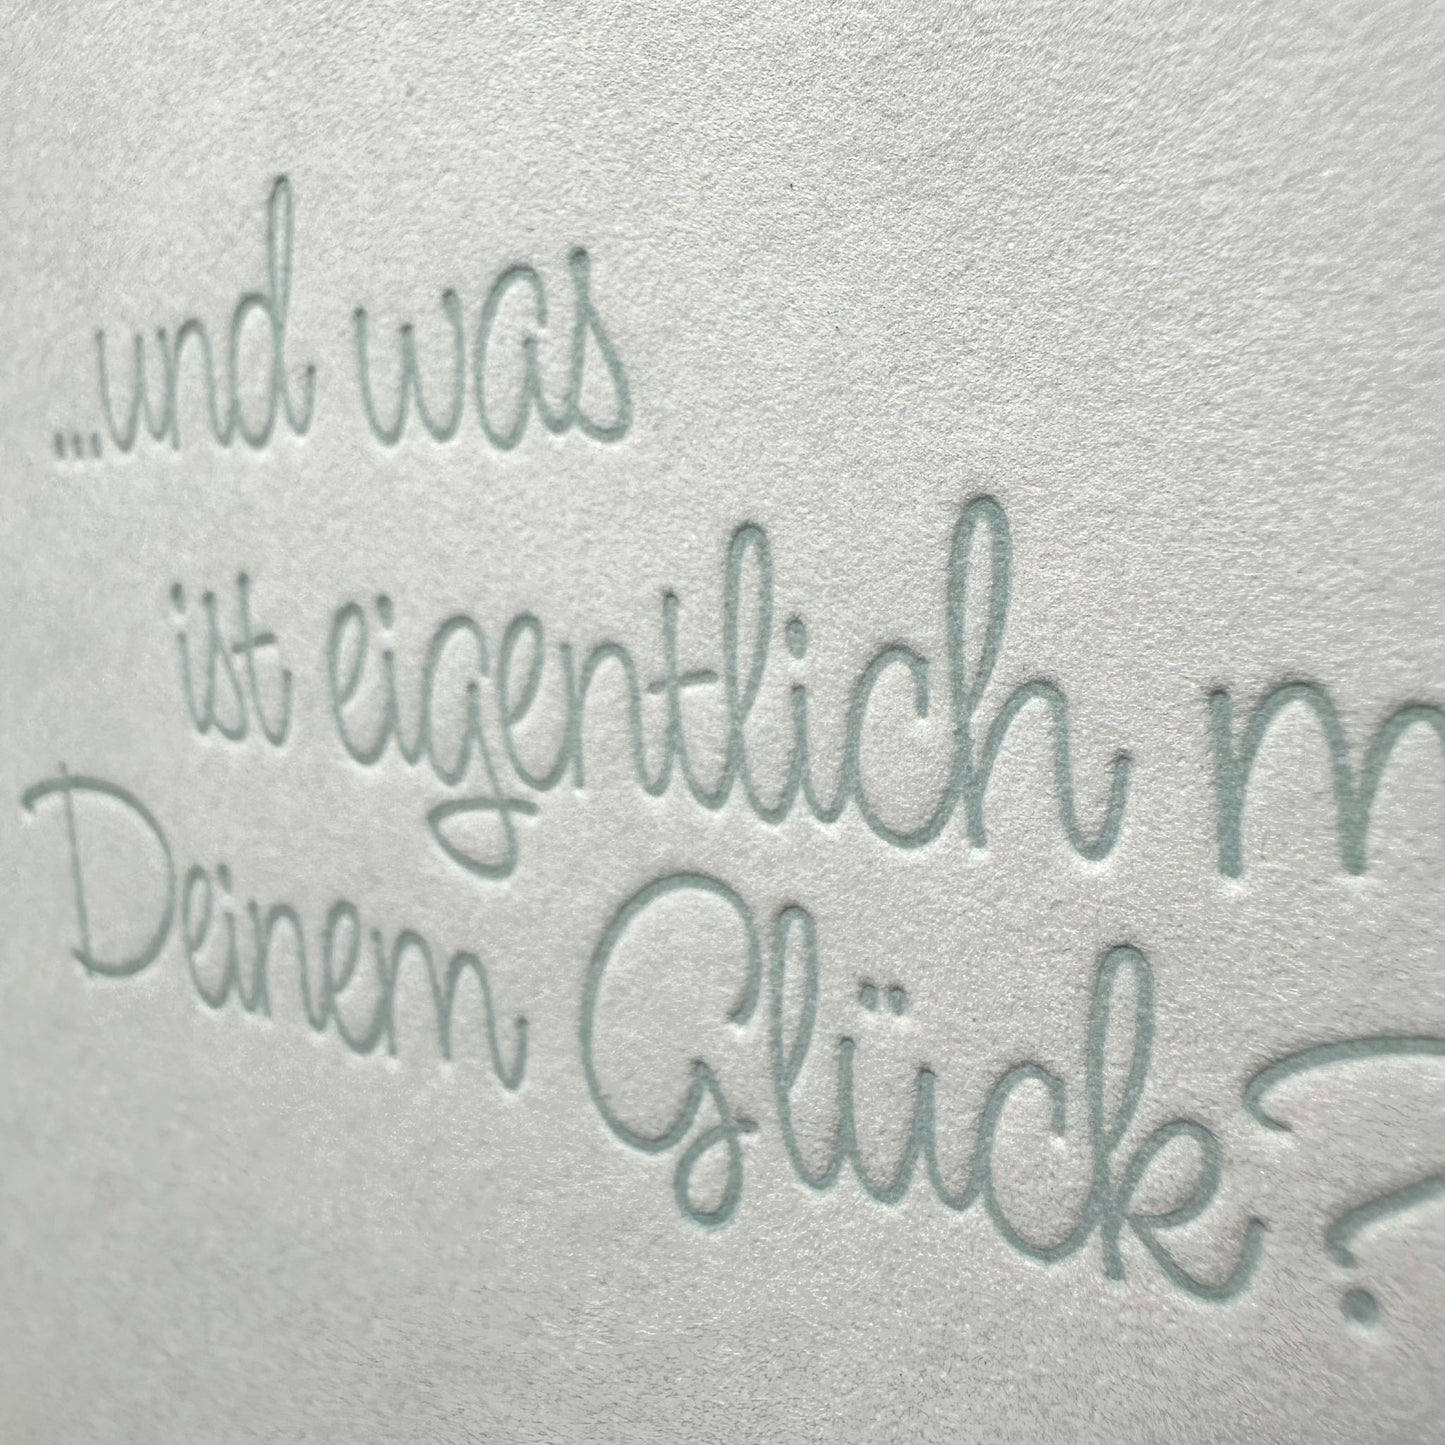 ...und was
ist eigentlich m
Deinem Glück?